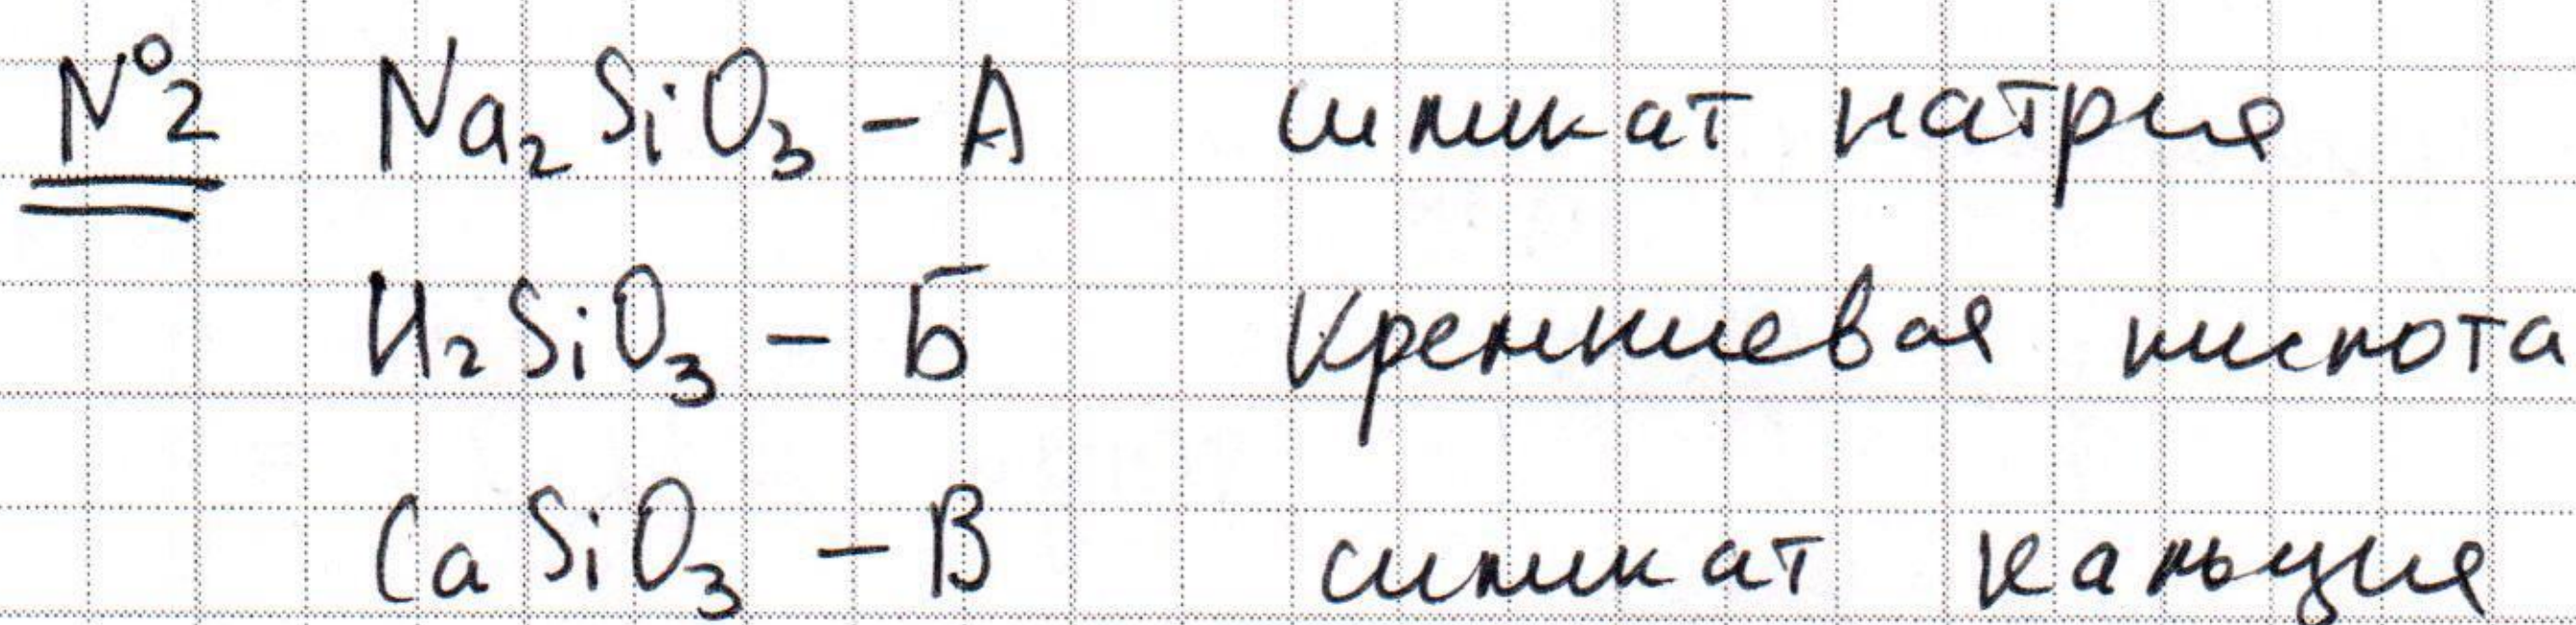 №2 Na₂SiO₃ - А силикат натрия
H₂SiO₃ - Б Кремниевая кислота
CaSiO₃ - В силикат кальция